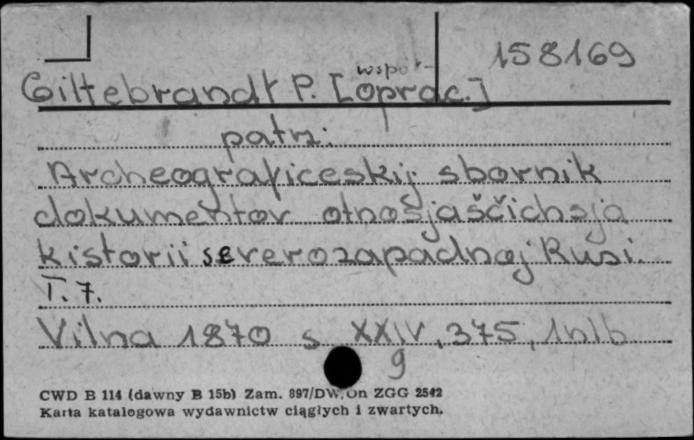 158169
Giltebrandt P. [współoprac.]
patrz:
Archeograficeskij sbornik
dokumentov otnosjaščichsja
k istorii severozapadnoj Rusi.
T. 7.
Vilna 1870 s. XXIV, 375, 1nlb
9
CWD B 114 (dawny B 15b) Zam. 897/DW, On ZGG 2542
Karta katalogowa wydawnictw ciągłych i zwartych.